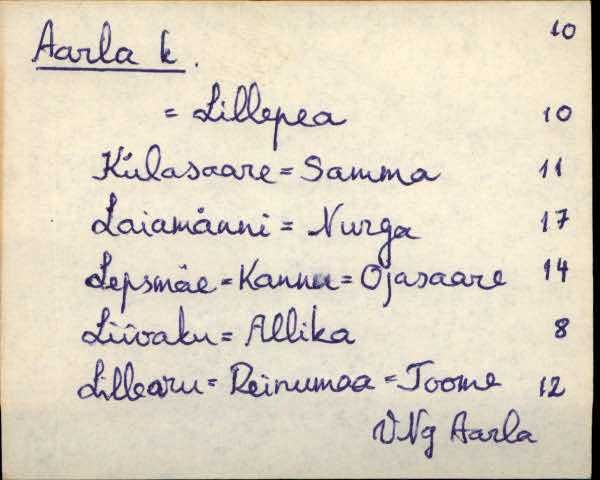 Aarla k. 10
= Lillepea 10
Külasaare = Samma 11
Laiamänni = Nurga 17
Lepsmäe = Kannu = Ojasaare 14
Liivaku = Allika 8
Lillearu = Reinumaa = Toome 12
VNg Aarla